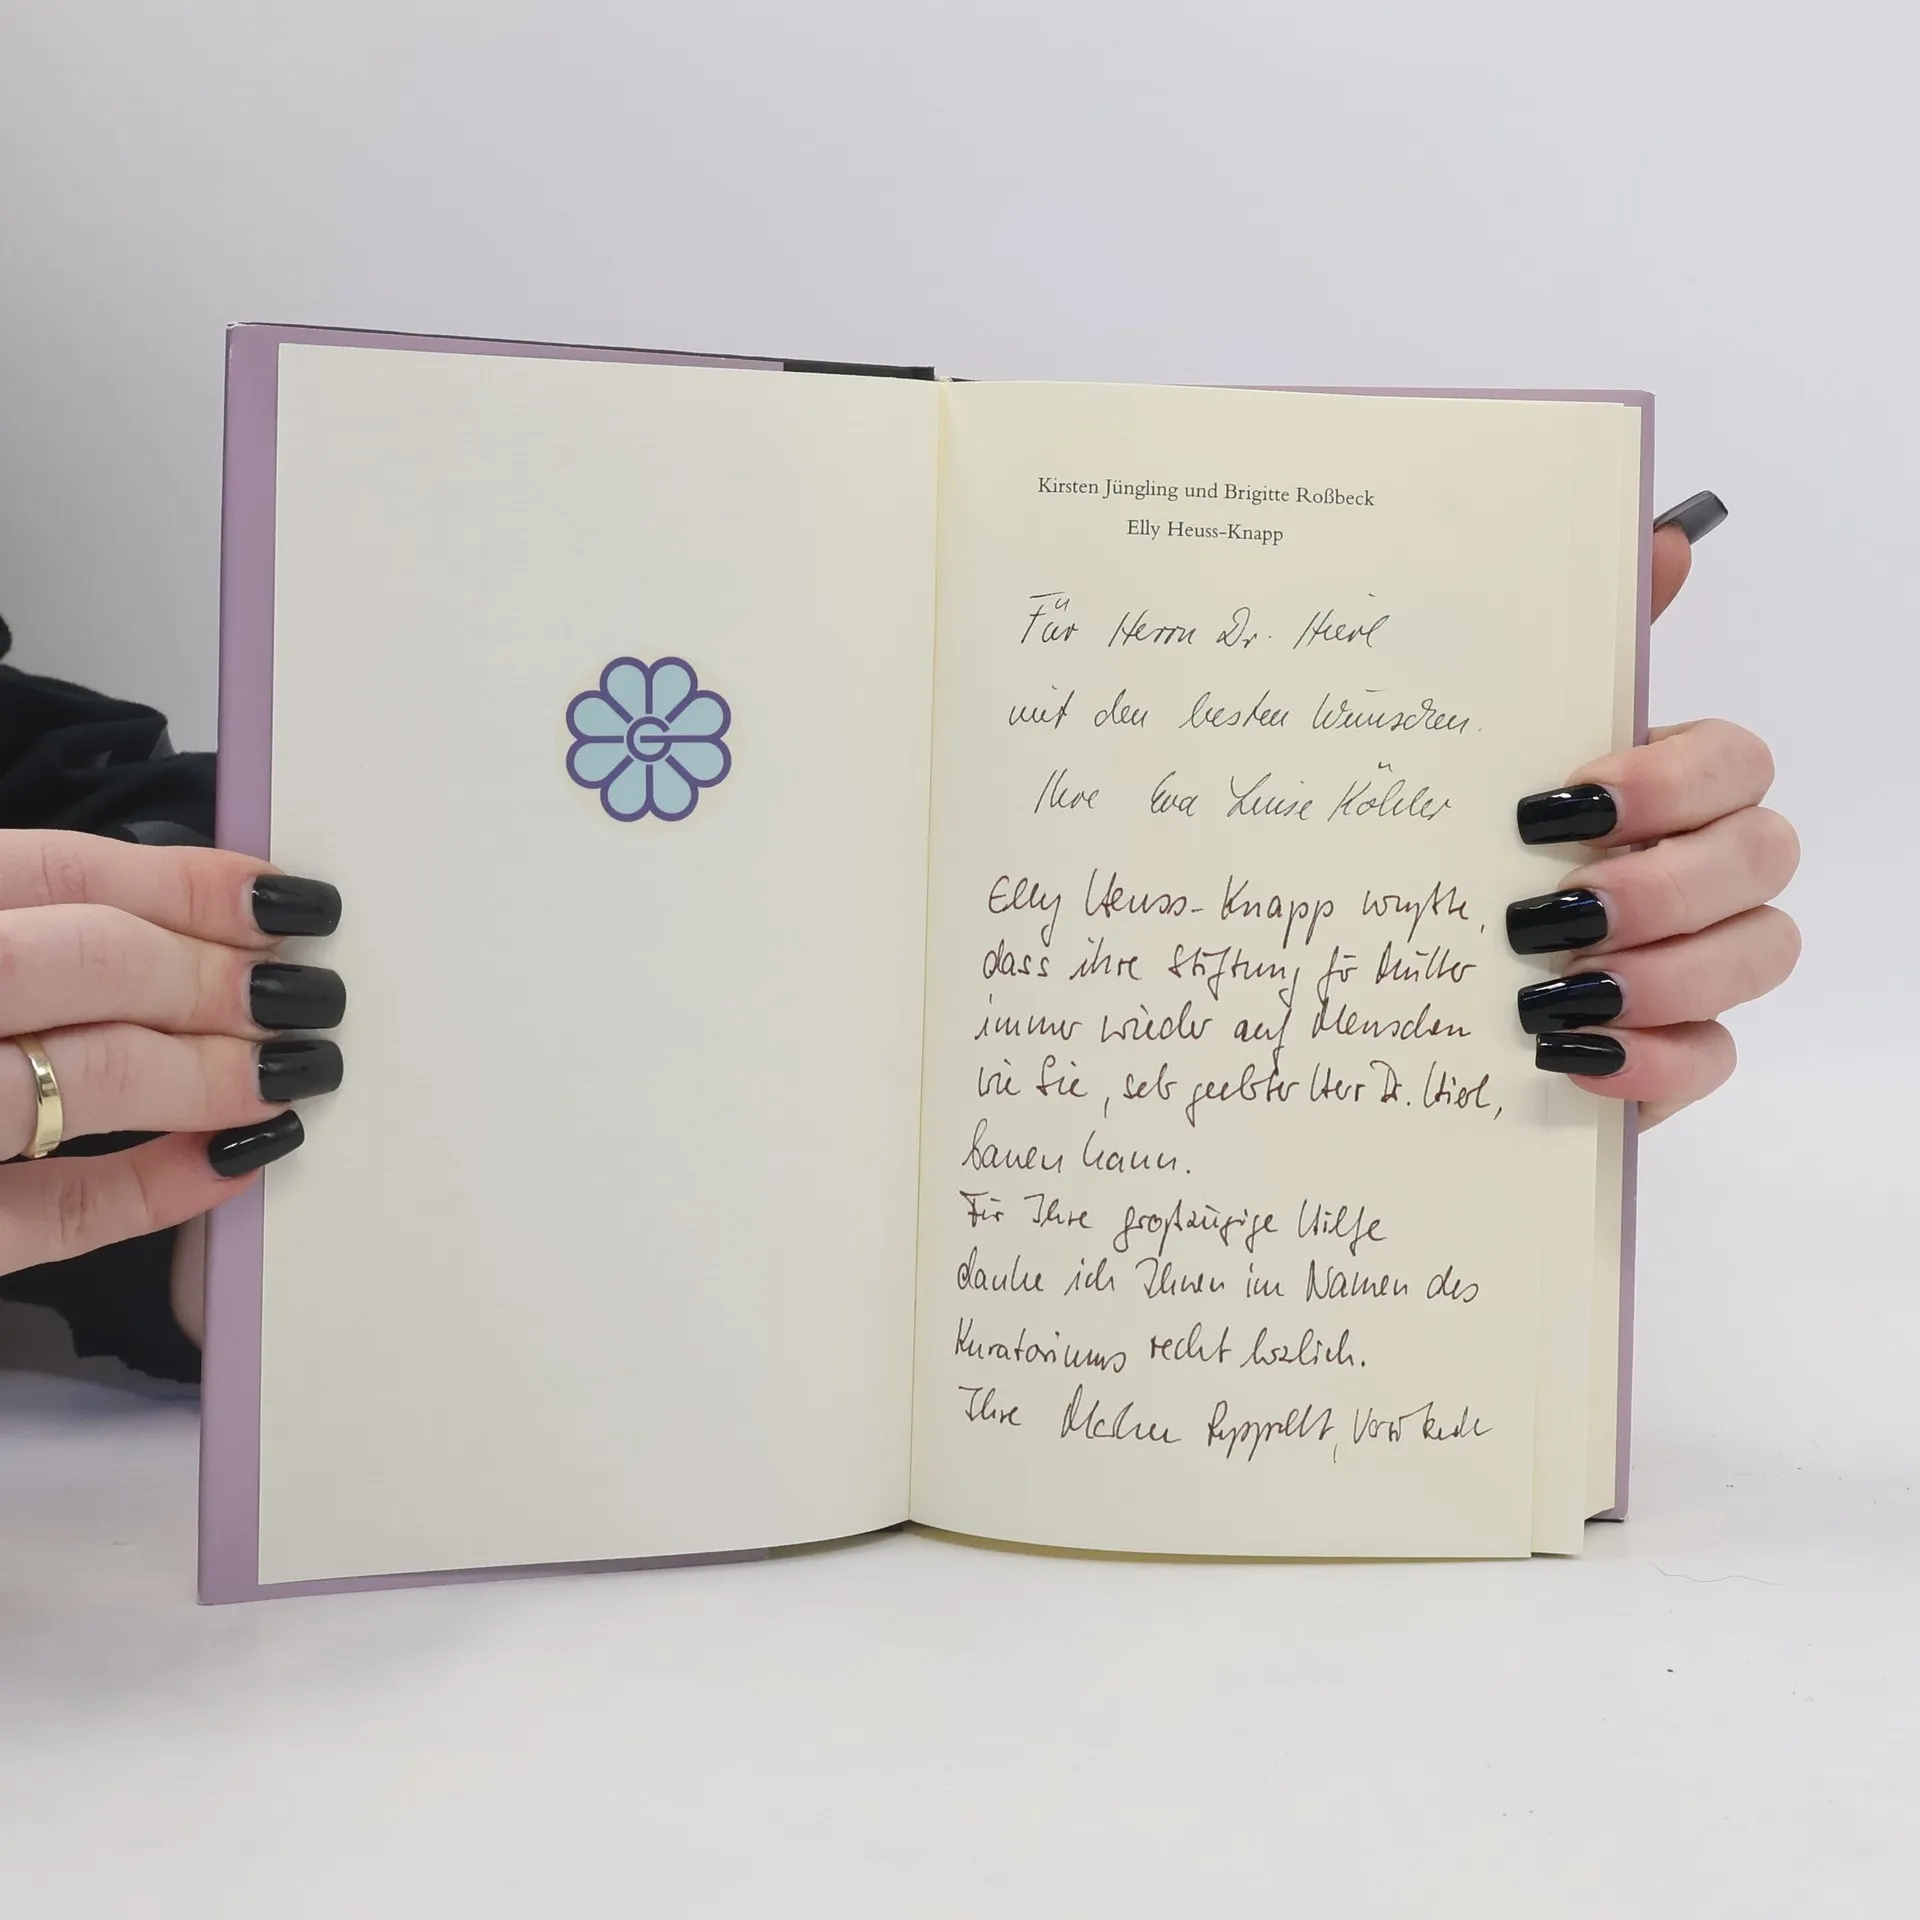 G
Kirsten Jüngling und Brigitte Roßbeck
Elly Heuss-Knapp
Für Herrn Dr. Hierl
mit den besten Wünschen.
Ihre Eva Luise Köhler
Elly Heuss-Knapp wußte,
dass ihre Stiftung für Mütter
immer wieder auf Menschen
wie Sie, sehr geehrter Herr Dr. Hierl,
bauen kann.
Für Ihre großzügige Hilfe
danke ich Ihnen im Namen des
Kuratoriums recht herzlich.
Ihre